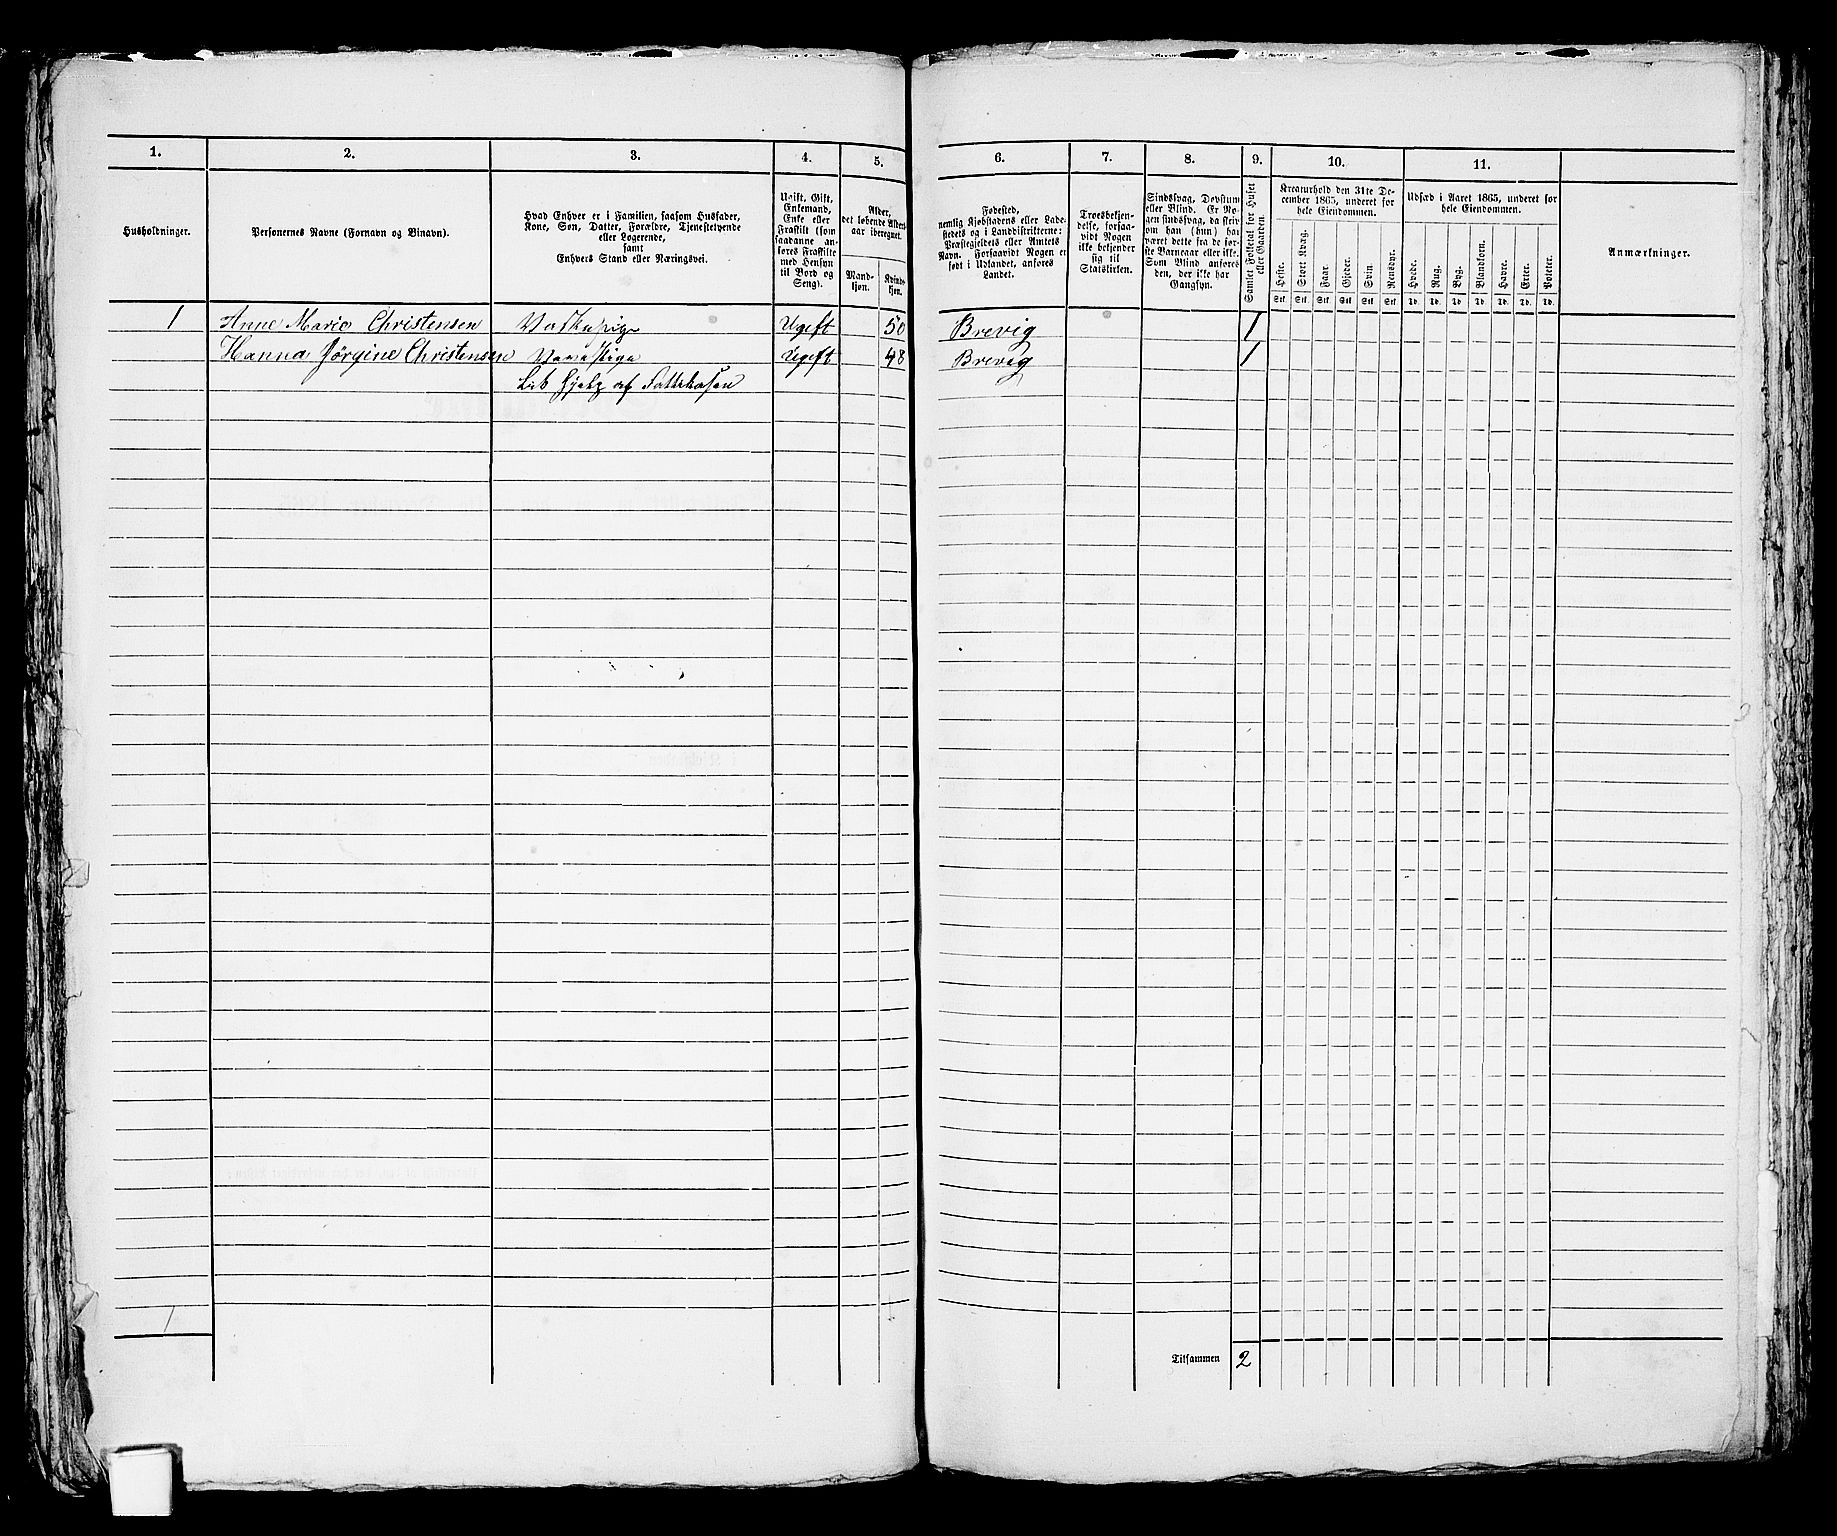 1.
2.
3.
4.
5.
6.
7.
8.
9.
10.
11.
Husholdninger.
Personernes Navne (Fornavn og Binavn).
Hvad Enhver er i Familien, saasom Husfader,
Kone, Søn, Datter, Forældre, Tjenestetyende
eller Logerende,
samt
Enhvers Stand eller Næringsvei.
Ugift, Gift,
Enkemand,
Enke eller
Fraskilt (som
saadanne an-
føres Fraskilte
med Hensyn
til Bord og
Seng).
Alder,
det løbende Alders-
aar iberegnet.
Mand-
kjøn.
Kvinde-
kjøn.
Fødested,
nemlig Kjøbstadens eller Lade-
stedets og i Landdistrikterne:
Præstegjeldets eller Amtets
Navn. Forsaavidt Nogen er
født i Udlandet, anføres
Landet.
Troesbekjen-
delse, forsaa-
vidt Nogen
ikke bekjender
sig til
Statskirken.
Sindssvag, Døvstum
eller Blind. Er No-
gen sindssvag, da skriv
om han (hun) har
været dette fra de før-
ste Barneaar eller ikke.
Som Blind anføres
den, der ikke har
Gangsyn.
Samlet Folketal for Huset
eller Gaarden.
Kreaturhold den 31te De-
cember 1865, underet for
hele Eiendommen.
Heste.
Stort Kvæg.
Faar.
Gjeder.
Svin.
Rensdyr.
Stk. Stk. Stk. Stk. Stk. Stk.
Udsæd i Aaret 1865, underet for
hele Eiendommen.
Hvede.
Rug.
Byg.
Blandkorn.
Havre.
Erter.
Poteter.
Td. Td. Td. Td. Td. Td. Td.
Anmærkninger.
1 Anne Marie Christensen Ugift 50 Brevig 1
Hanna Jørgine Christensen Ugift 48 Brevig 1
Lidt Hjelp af Fattekasen
1
Tilsammen 2